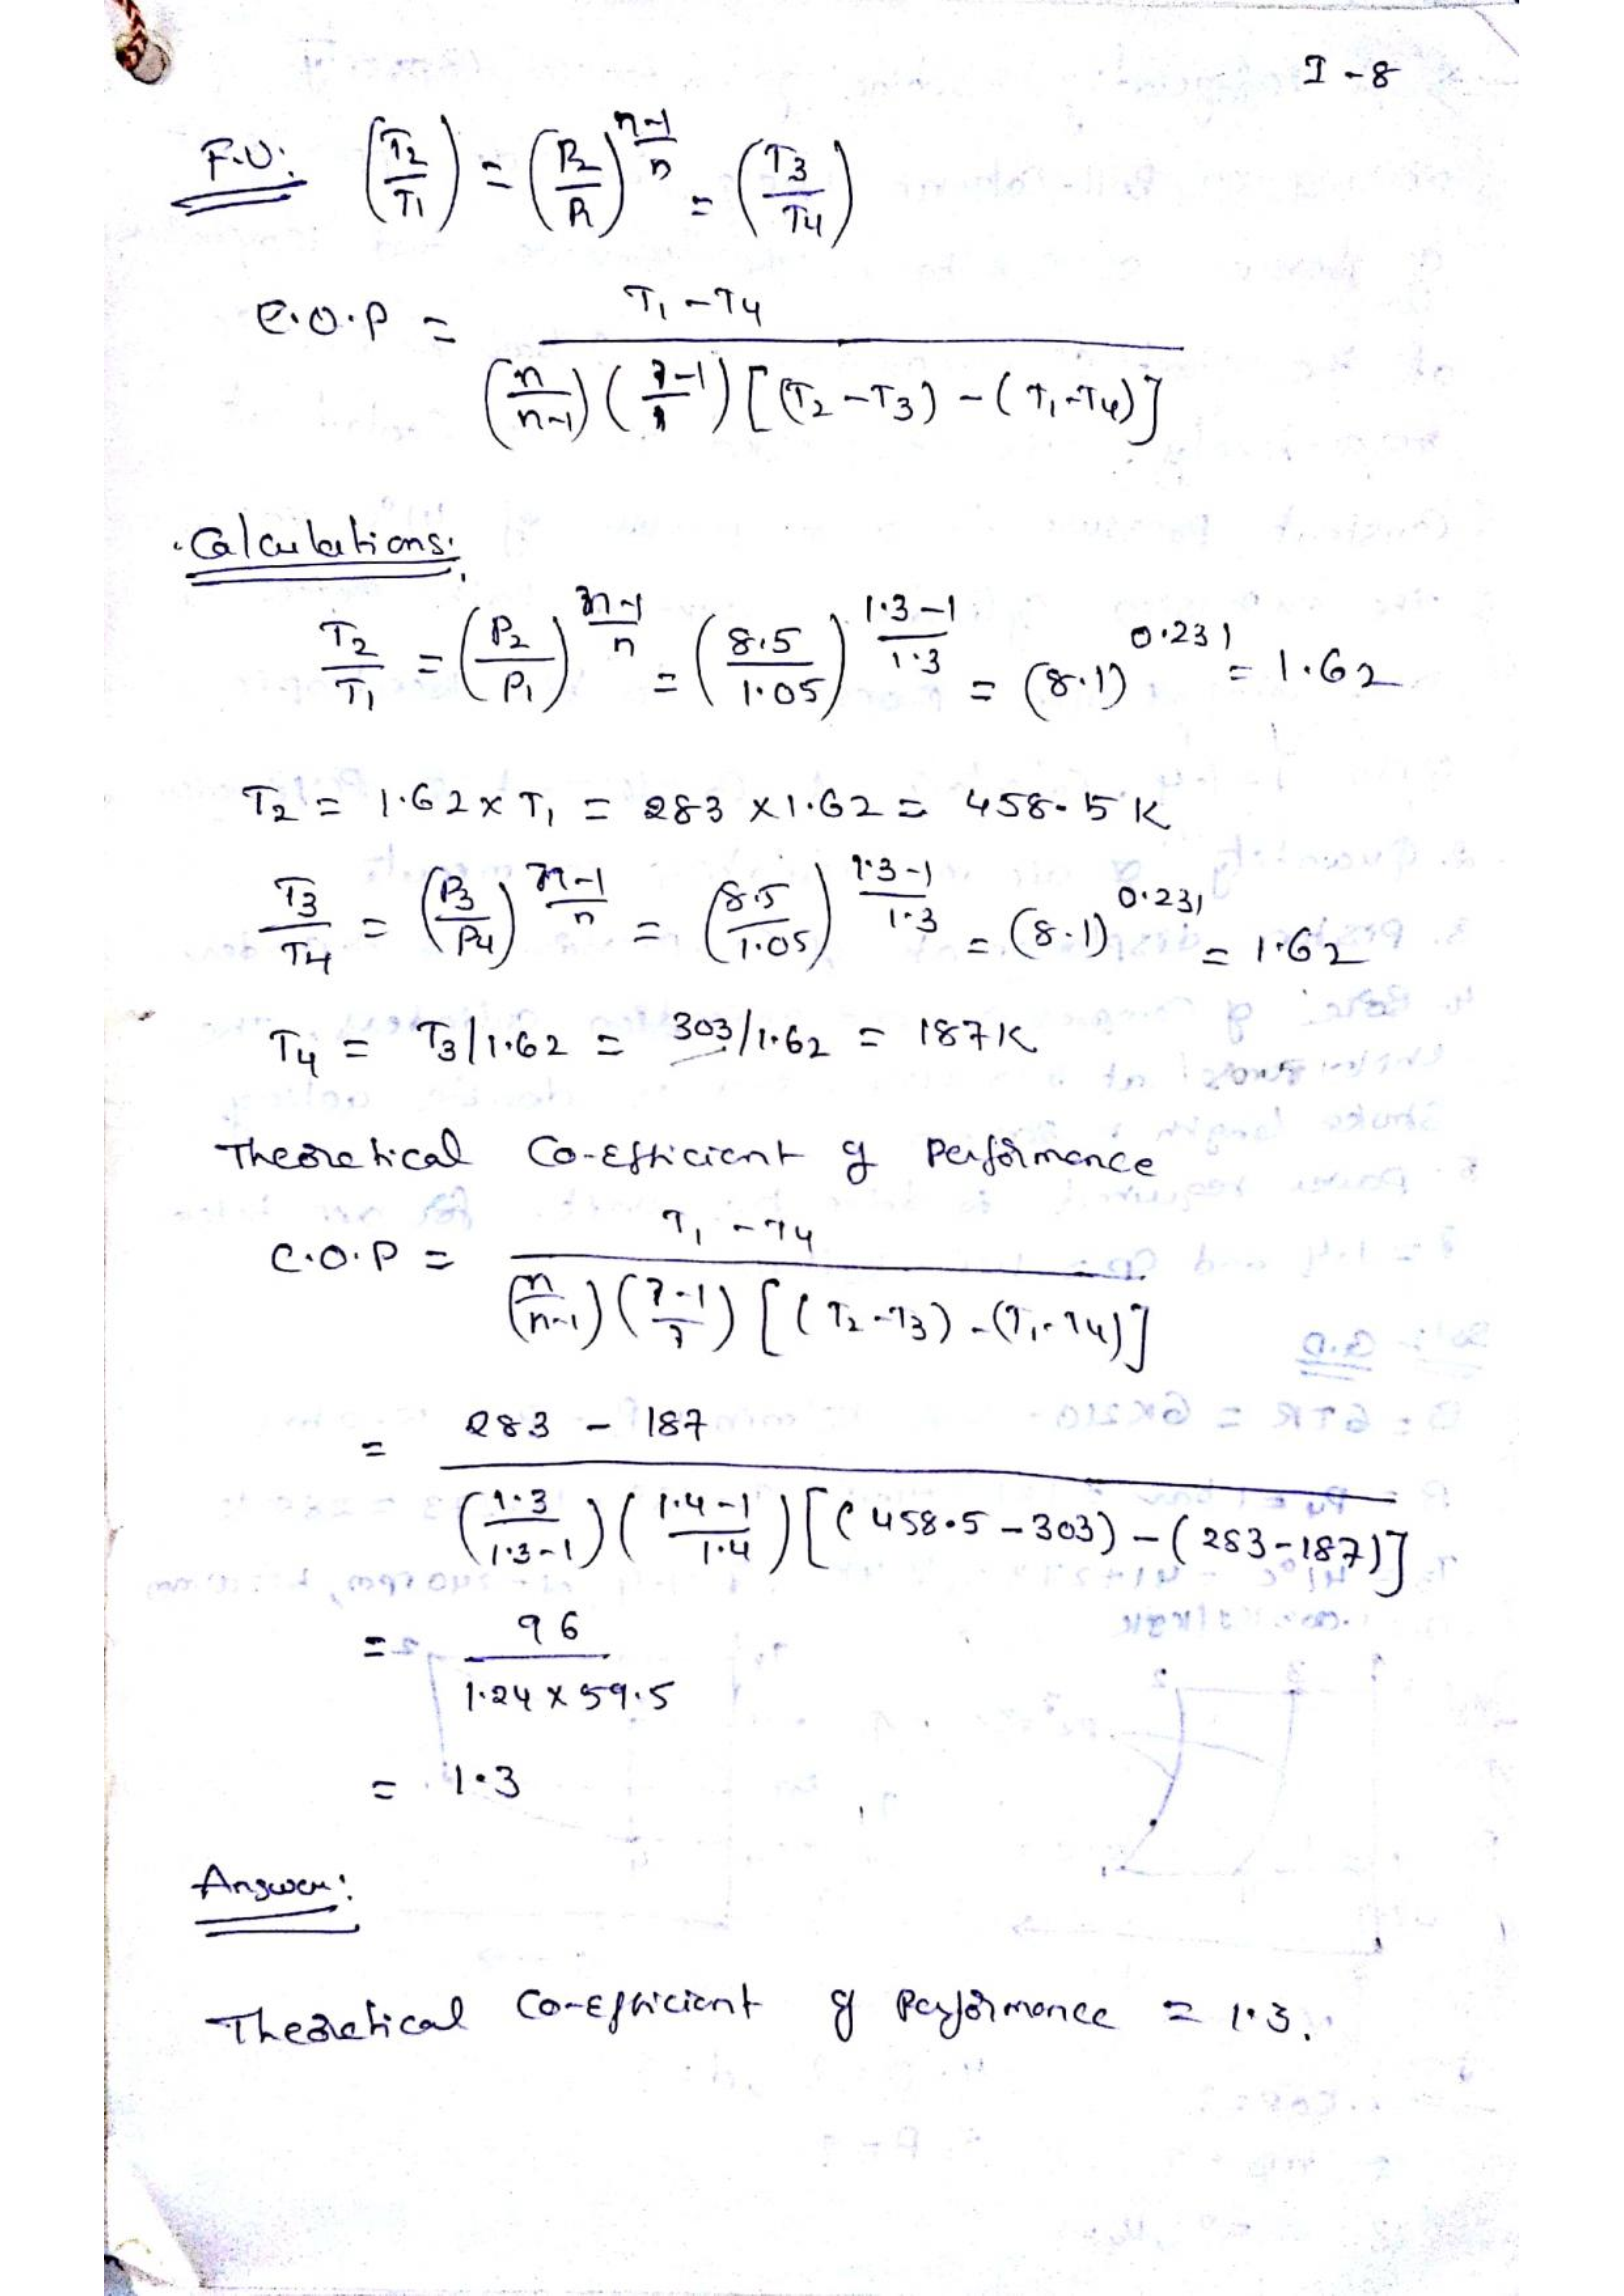 I-8
F.U: (T2/T1) = (P2/P1)^(n-1/n) = (T3/T4)
C.O.P = T1 - T4 / (n/n-1) (γ-1/γ) [(T2 - T3) - (T1 - T4)]
Calculations:
T2/T1 = (P2/P1)^(n-1/n) = (8.5/1.05)^(1.3-1/1.3) = (8.1)^0.231 = 1.62
T2 = 1.62 x T1 = 283 x 1.62 = 458.5 K
T3/T4 = (P3/P4)^(n-1/n) = (8.5/1.05)^(1.3-1/1.3) = (8.1)^0.231 = 1.62
T4 = T3/1.62 = 303/1.62 = 187K
Theoretical Co-efficient of Performance
C.O.P = T1 - T4 / (n/n-1) (γ-1/γ) [(T2 - T3) - (T1 - T4)]
= 283 - 187 / (1.3/1.3-1) (1.4-1/1.4) [(458.5 - 303) - (283 - 187)]
= 96 / 1.24 x 59.5
= 1.3
Answer:
Theoretical Co-efficient of Performance = 1.3.